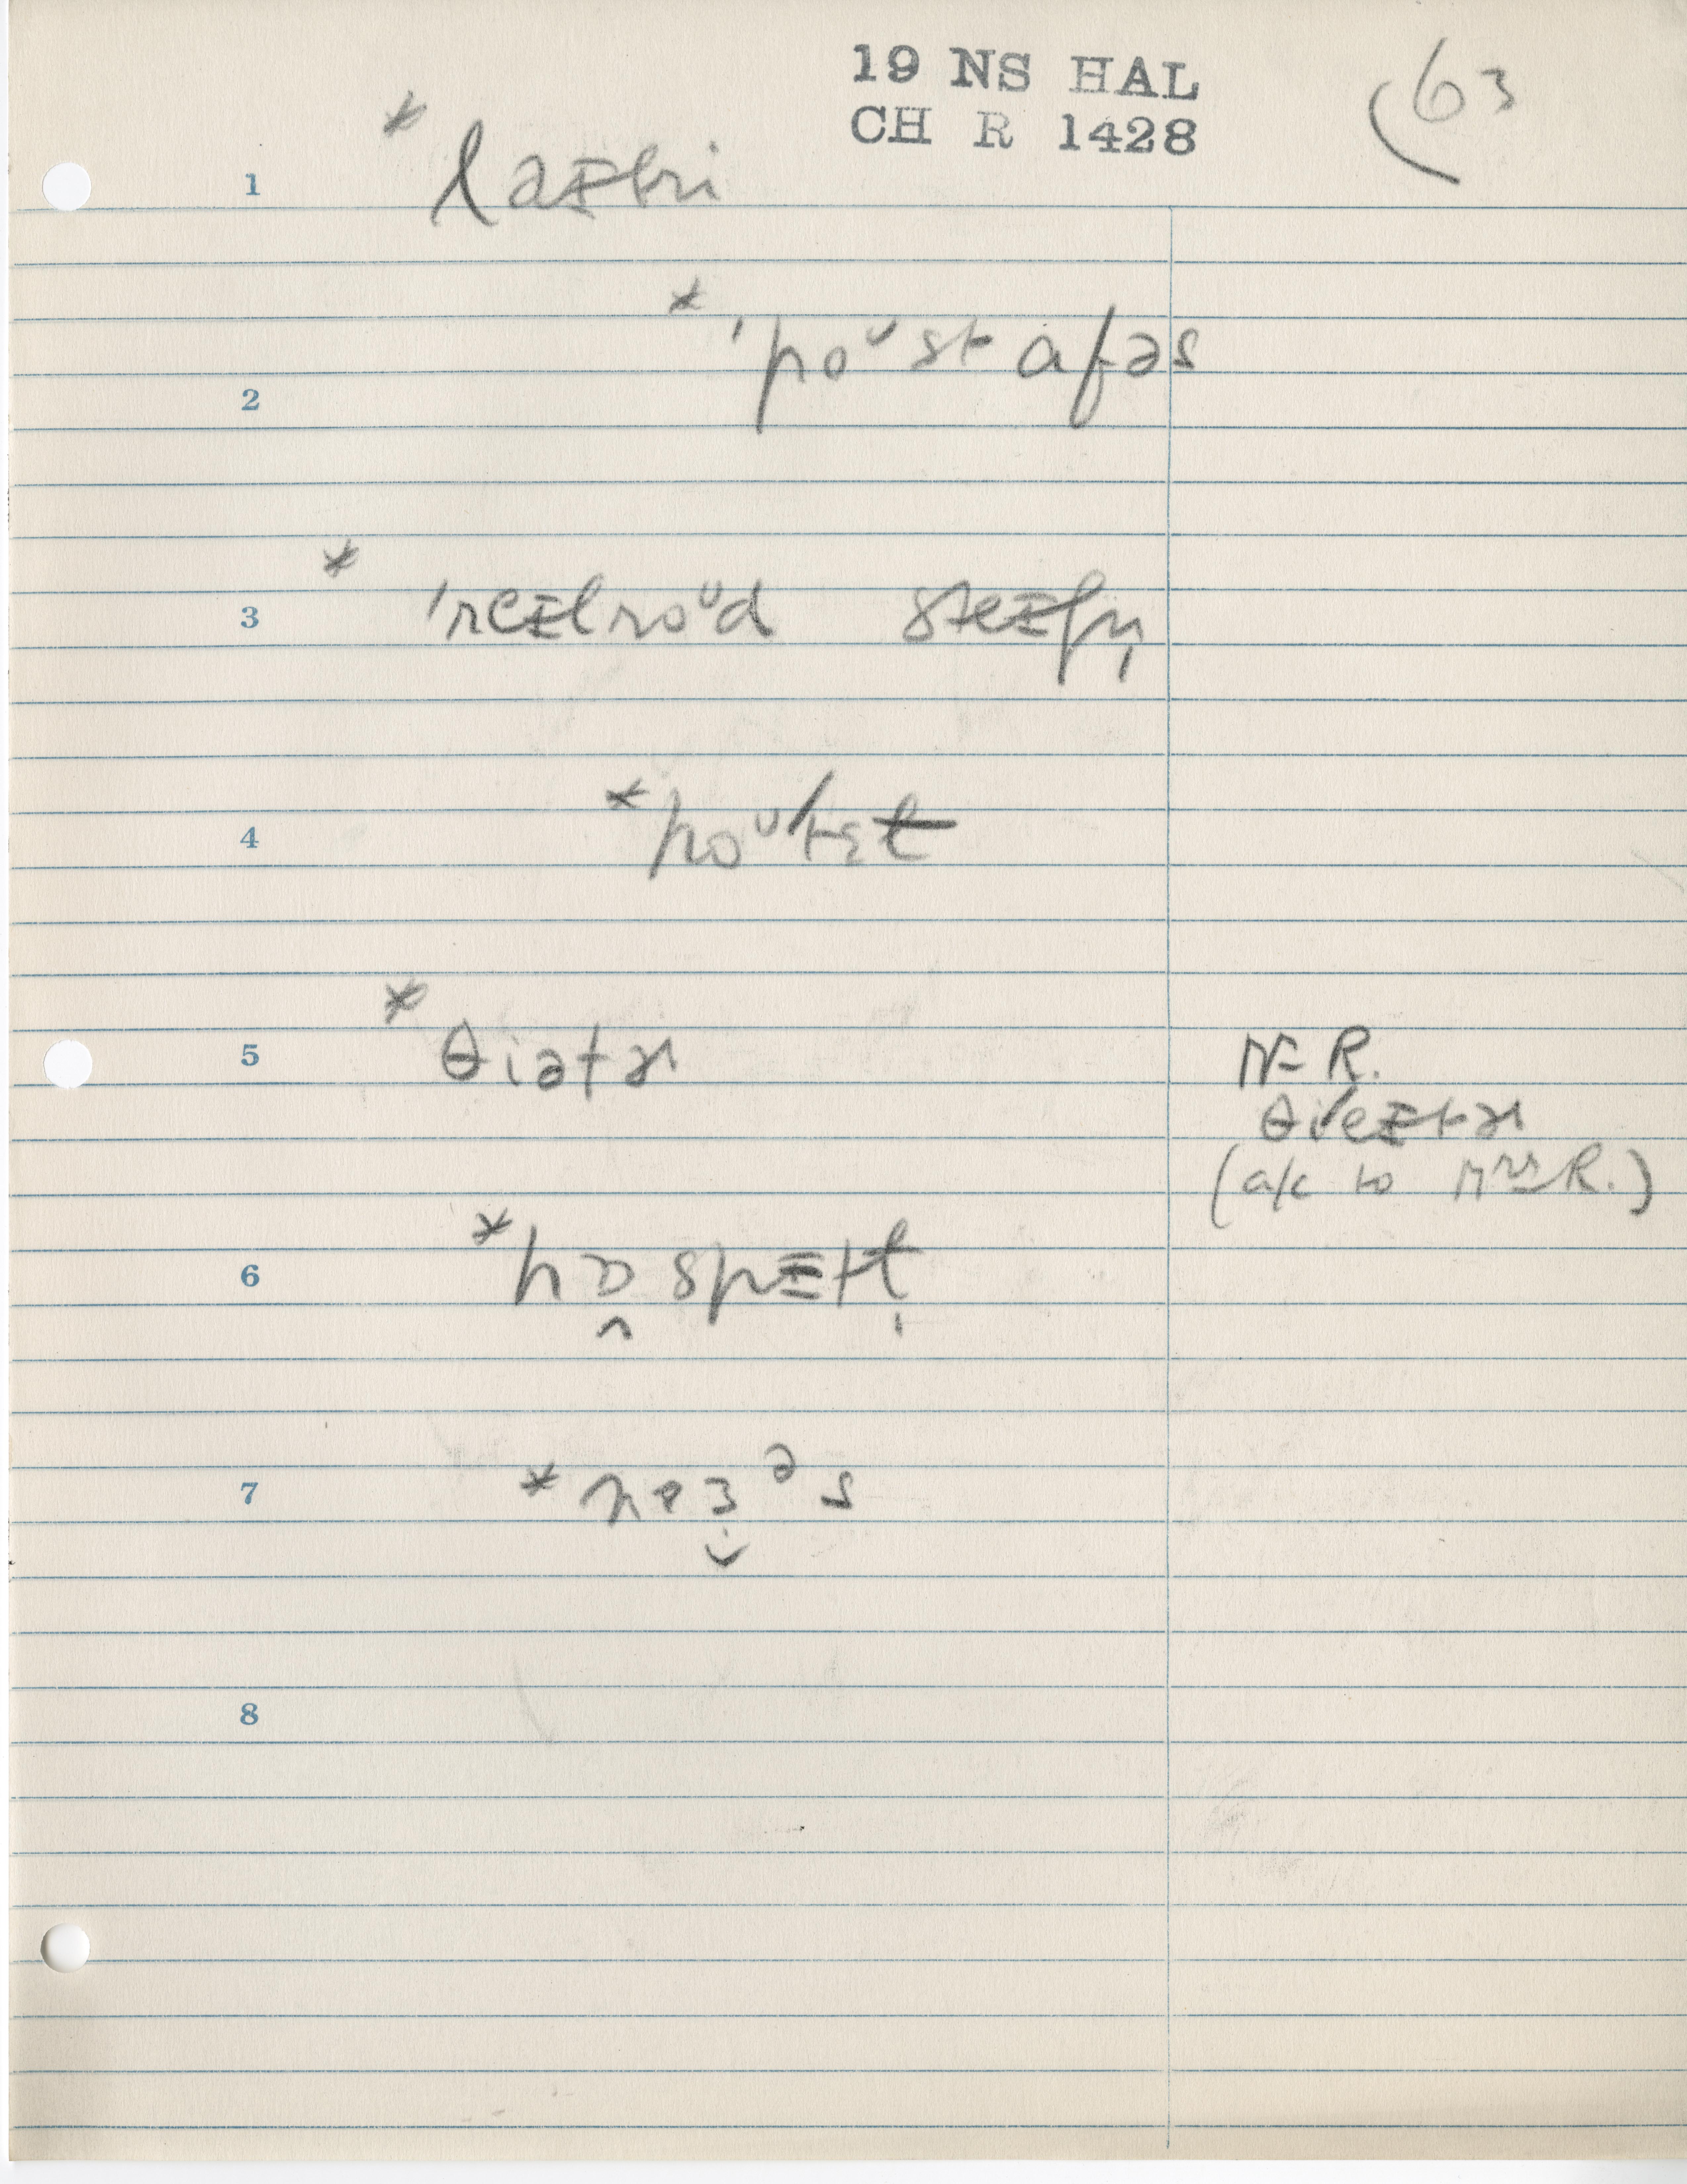 19 NS HAL
CH R 1428
63
1 * laɪbri
2 * ˈpoᶷst ɑfəs
3 * ˈreɪlroᶷd steɪʃn̩
4 * poᶷlɪs
5 * θiətɚ
N-R.
θiˈeɪtɚ
(a/c to Mrs R.)
6 * hɒ̭spɪtl̩
7 *
8